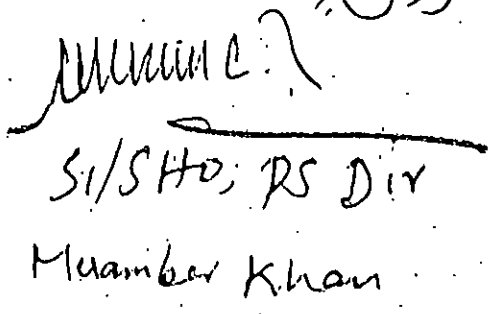 SI/SHO; PS Dir
Muambar Khan